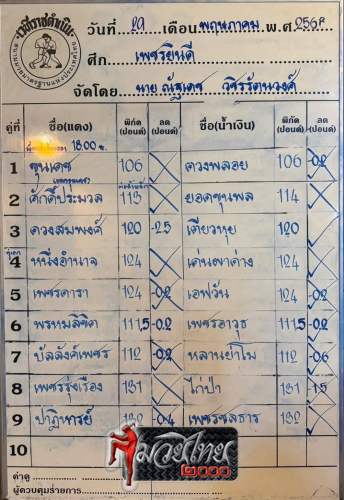 เวทีราชดำเนิน
สนามมวยมาตรฐานแห่งประเทศไทย
วันที่ 29 เดือน พฤษภาคม พ.ศ. 2568
ศึก เพชรยินดี
จัดโดย นาย ณัฐเดช วชิรรัตนวงศ์
คู่ที่ ชื่อ(แดง) พิกัด (ปอนด์) ลด (ปอนด์) ชื่อ(น้ำเงิน) พิกัด (ปอนด์) ลด (ปอนด์)
18.00 น.
1 ขุนเดช 106 ดวงพลอย 106 -0.2
2 ศักดิ์ประมวล 113 ยอดขุนพล 114
3 ดวงสมพงศ์ 120 -2.5 เดียวหุย 120
คู่เอก
4 หนึ่งอำนาจ 124 เด่นผาด่าง 124
5 เพชรดารา 124 -0.2 เอฟวัน 124 -0.2
6 พรหมลิขิต 111.5 -0.2 เพชรอาวุธ 111.5 -0.2
7 บัลลังก์เพชร 112 -0.2 หลานย่าโม 112 -0.6
8 เพชรรุ่งเรือง 131 ไก่ป่า 131 -1.5
9 ปาฏิหารย์ 132 -0.4 เพชรชลธาร 132
10
มวยไทย
2000
ค่าดู
ผู้ควบคุมรายการ